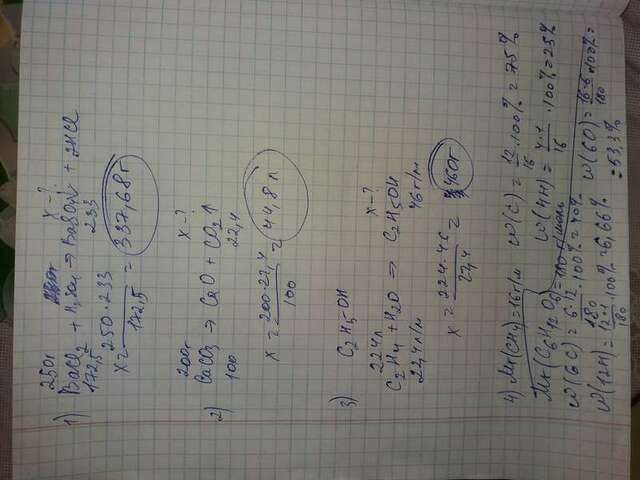 250г x-?
1) BaCl2 + H2SO4 → BaSO4↓ + 2HCl
172,5 233
x = 250·233 / 172,5 = 337,68г
200г x-?
2) CaCO3 → CaO + CO2↑
100 22,4
x = 200·22,4 / 100 = 44,8л
3) C2H5-OH
224л x-?
C2H4 + H2O → C2H5OH
22,4л/м 46г/м
x = 224·46 / 22,4 = 460г
4) Mr(CH4) = 16г/м W(C) = 12/16 ·100% = 75%
W(4H) = 4·1/16 ·100% = 25%
Mr(C6H12O6) = 180г/моль
W(6C) = 6·12/180 ·100% = 40% W(6O) = 16·6/180 ·100% =
W(12H) = 12·1/180 ·100% = 6,66% = 53,3%